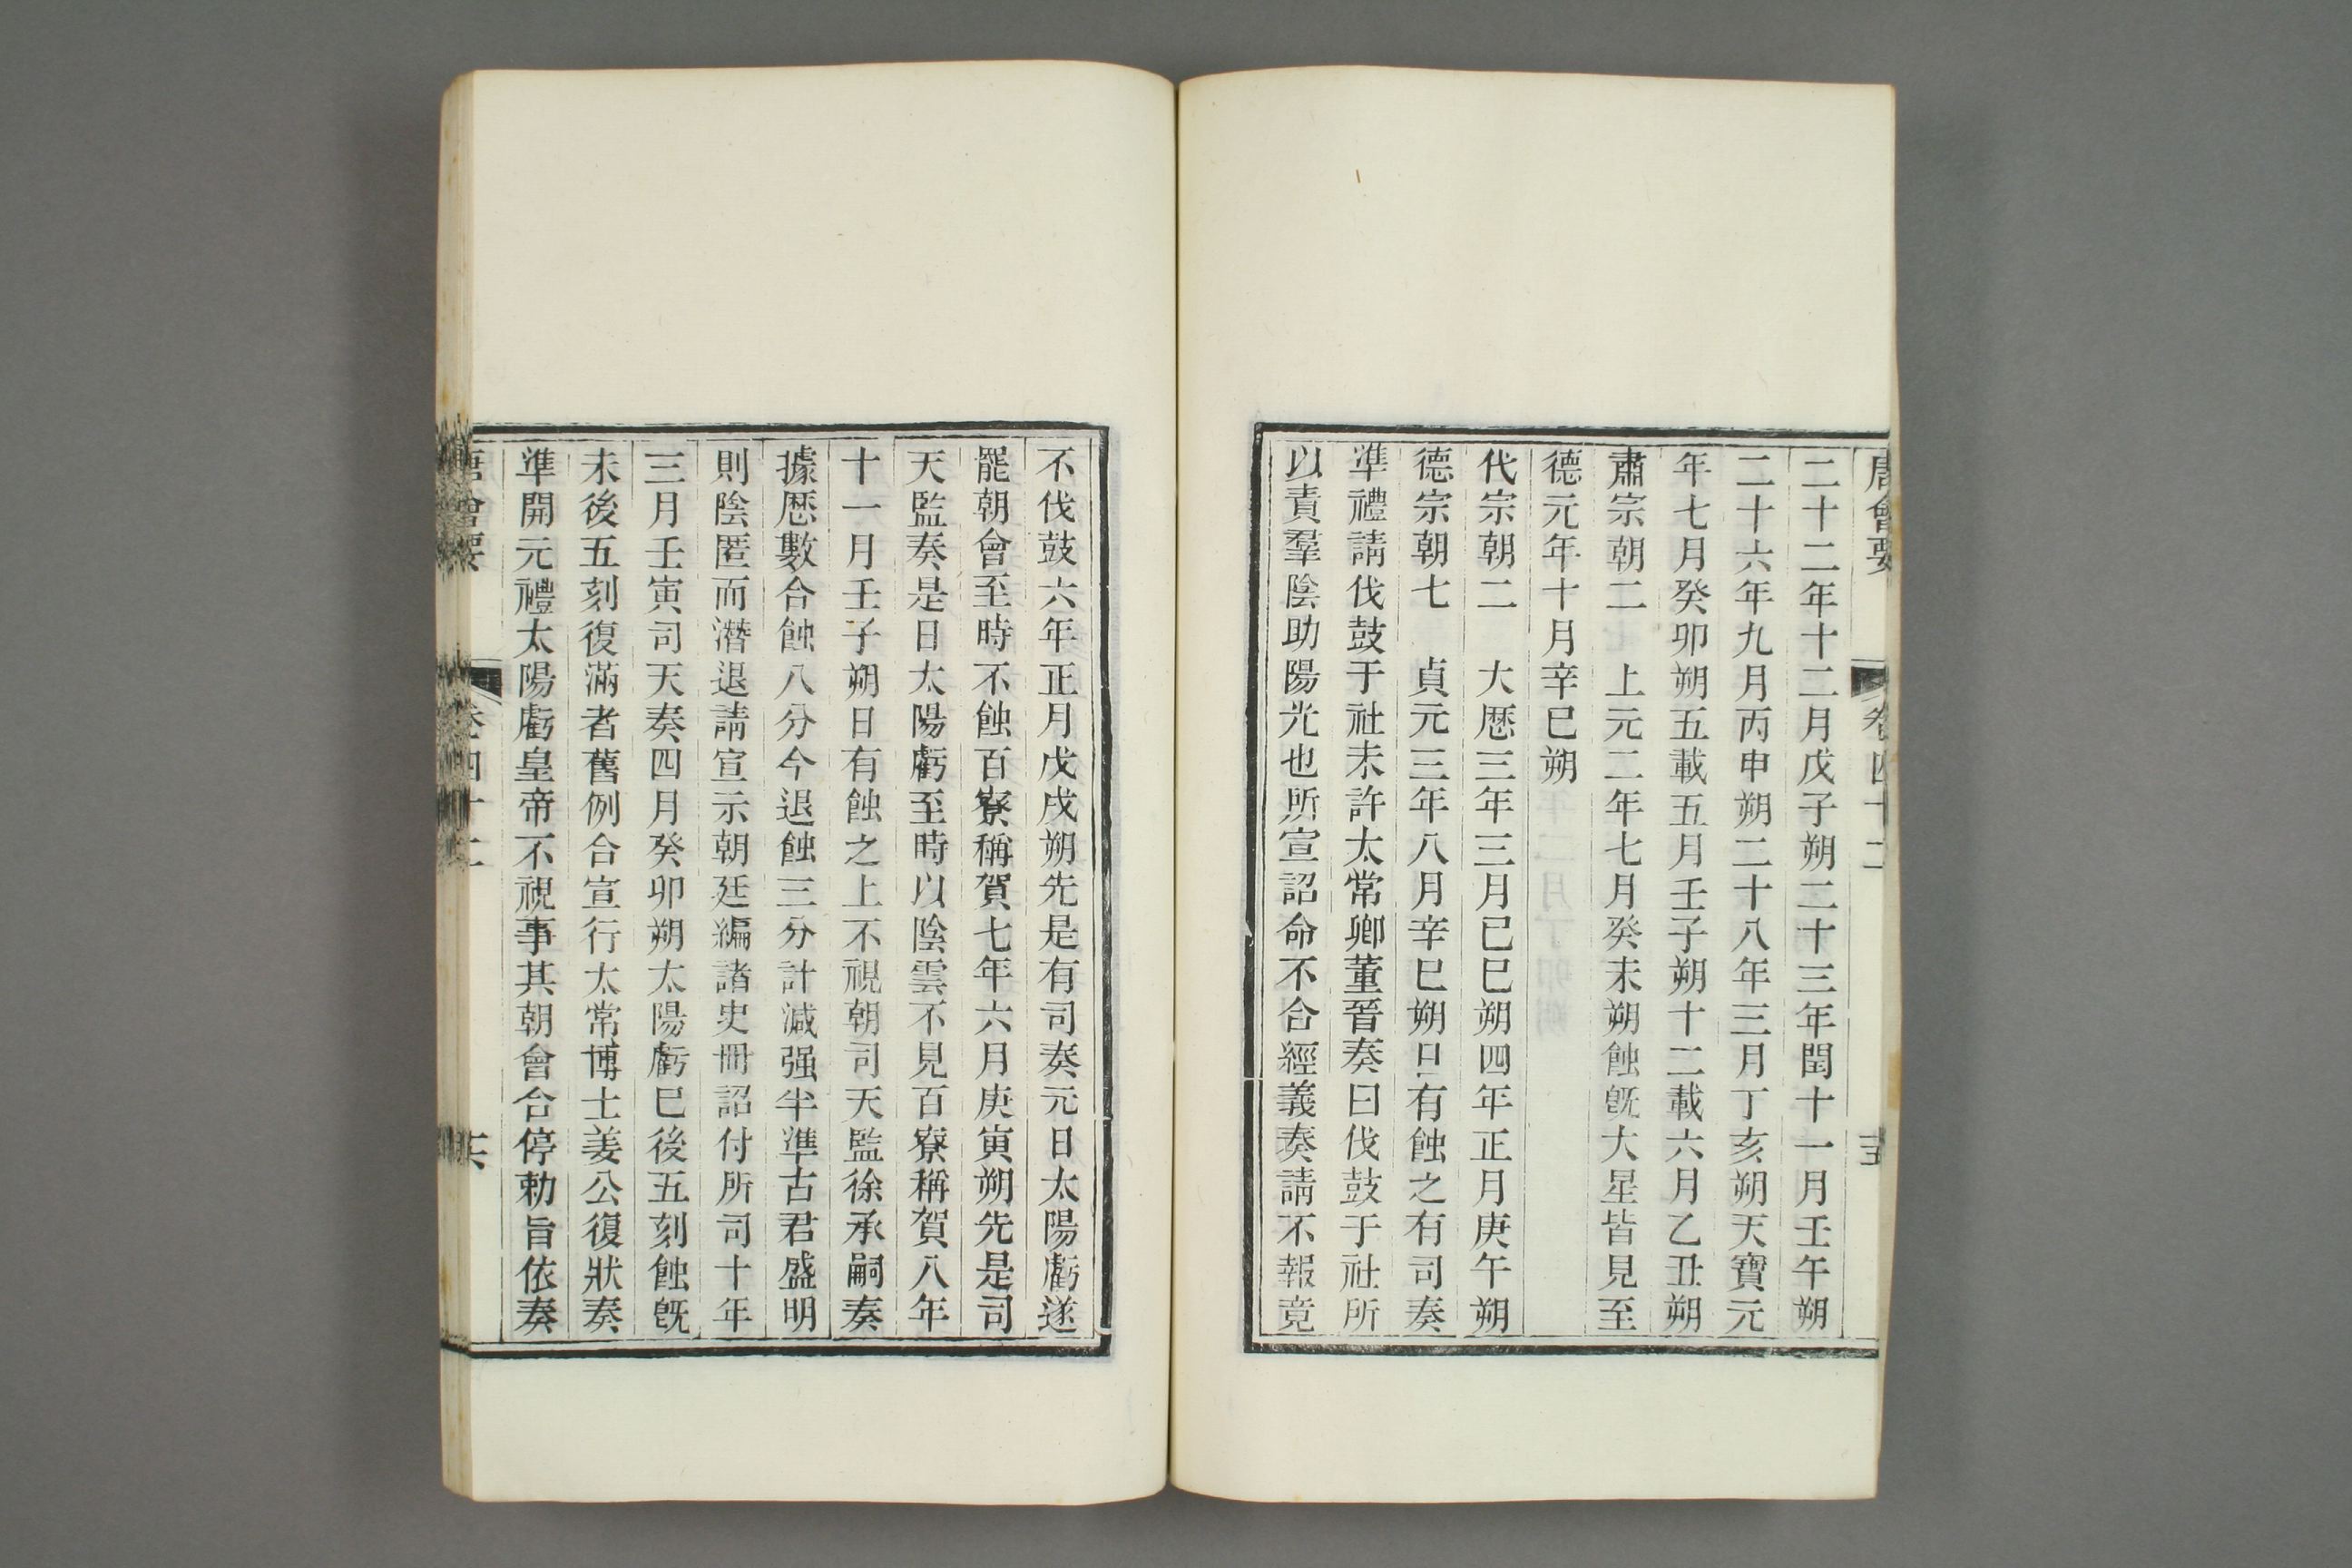 唐會要 卷四十二 十五
二十二年十二月戊子朔二十三年閏十一月壬午朔
二十六年九月丙申朔二十八年三月丁亥朔天寶元
年七月癸卯朔五載五月壬子朔十二載六月乙丑朔
肅宗朝二 上元二年七月癸未朔蝕旣大星皆見至
德元年十月辛巳朔
代宗朝二 大厯三年三月已巳朔四年正月庚午朔
德宗朝七 貞元三年八月辛巳朔日有蝕之有司奏
準禮請伐鼓于社未許太常卿董晉奏曰伐鼓于社所
以責羣陰助陽光也所宣詔命不合經義奏請不報竟
不伐鼓六年正月戊戌朔先是有司奏元日太陽虧遂
罷朝會至時不蝕百寮稱賀七年六月庚寅朔先是司
天監奏是日太陽虧至時以陰雲不見百寮稱賀八年
十一月壬子朔日有蝕之上不視朝司天監徐承嗣奏
據厯數合蝕八分今退蝕三分計減强半準古君盛明
則陰匿而潛退請宣示朝廷編諸史冊詔付所司十年
三月壬寅司天奏四月癸卯朔太陽虧巳後五刻蝕旣
未後五刻復滿者舊例合宣行太常博士姜公復狀奏
準開元禮太陽虧皇帝不視事其朝會合停勅旨依奏
唐會要 卷四十二 十六